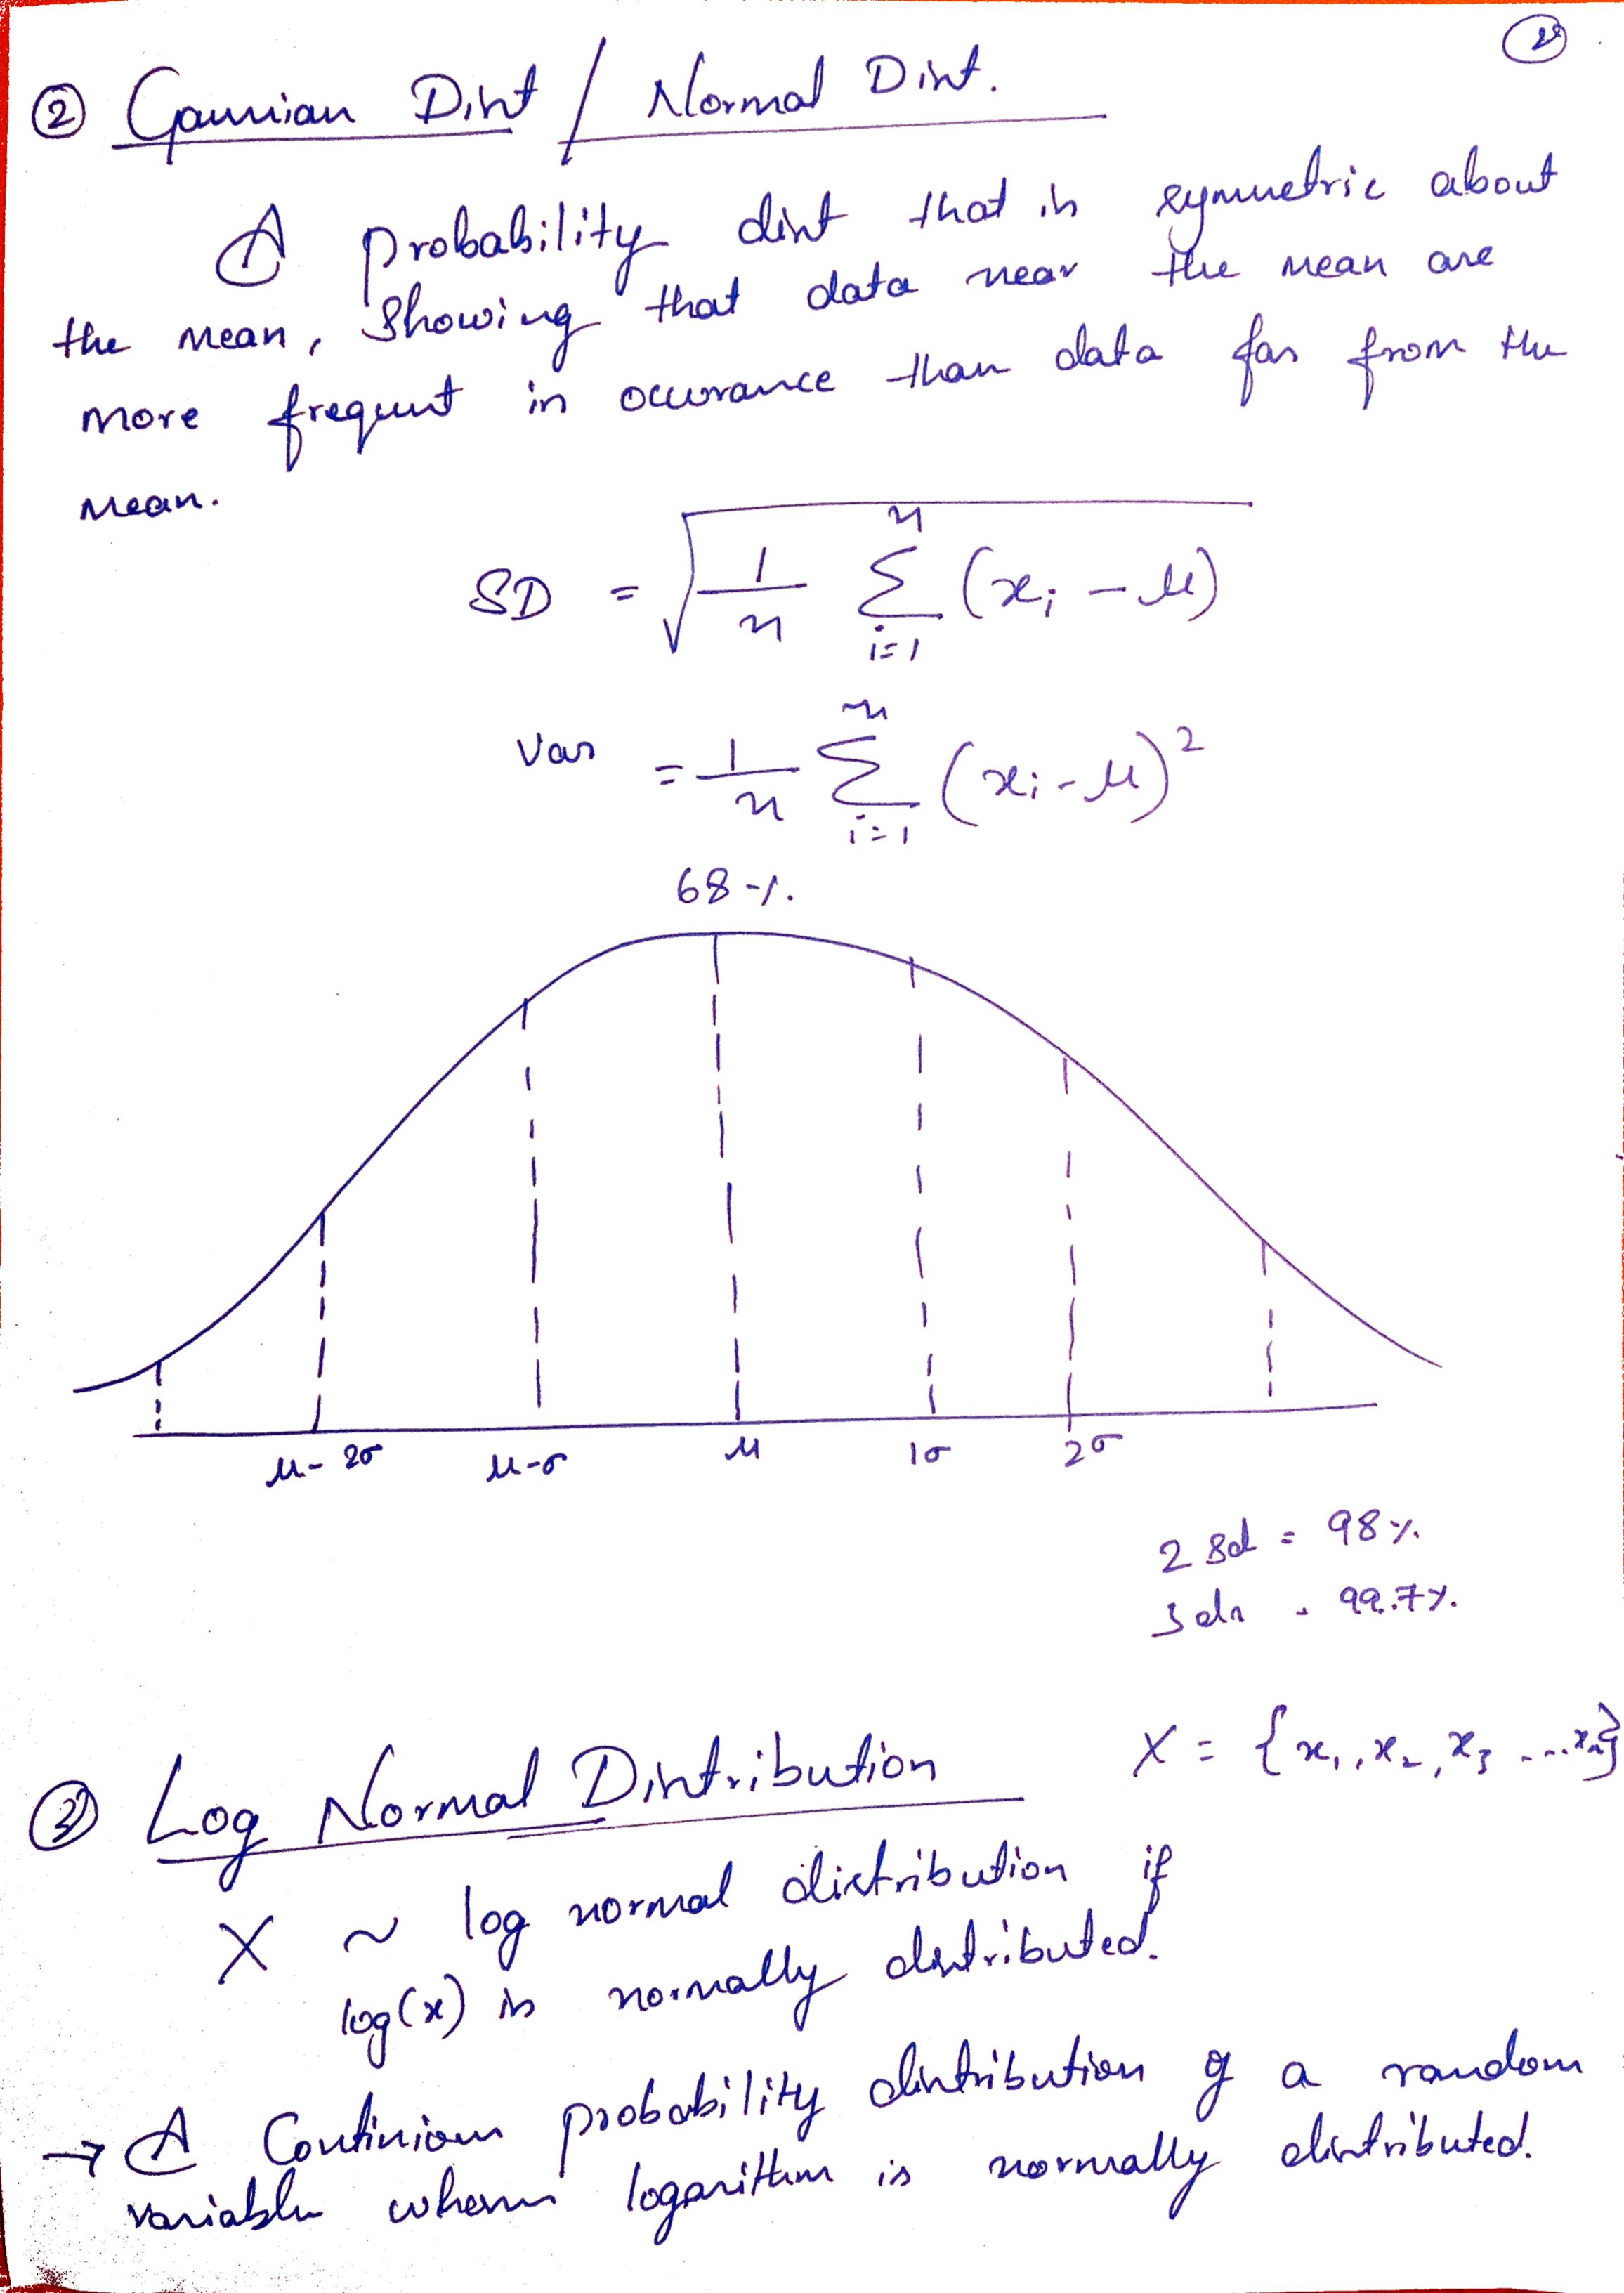 ② Gaussian Dist / Normal Dist.
A probability dist that is symmetric about
the mean, showing that data near the mean are
more frequent in occurance than data far from the
mean.
SD = √(1/n Σ_{i=1}^{n} (xᵢ - μ))
Var = 1/n Σ_{i=1}^{n} (xᵢ - μ)²
68%
μ-2σ μ-σ μ 1σ 2σ
2 sd = 98%
3 sds 99.7%
③ Log Normal Distribution X = {x₁, x₂, x₃ ...xₙ}
X ~ log normal distribution if
log(x) is normally distributed.
→ A Continious probability distribution of a random
variable whose logarithm is normally distributed.